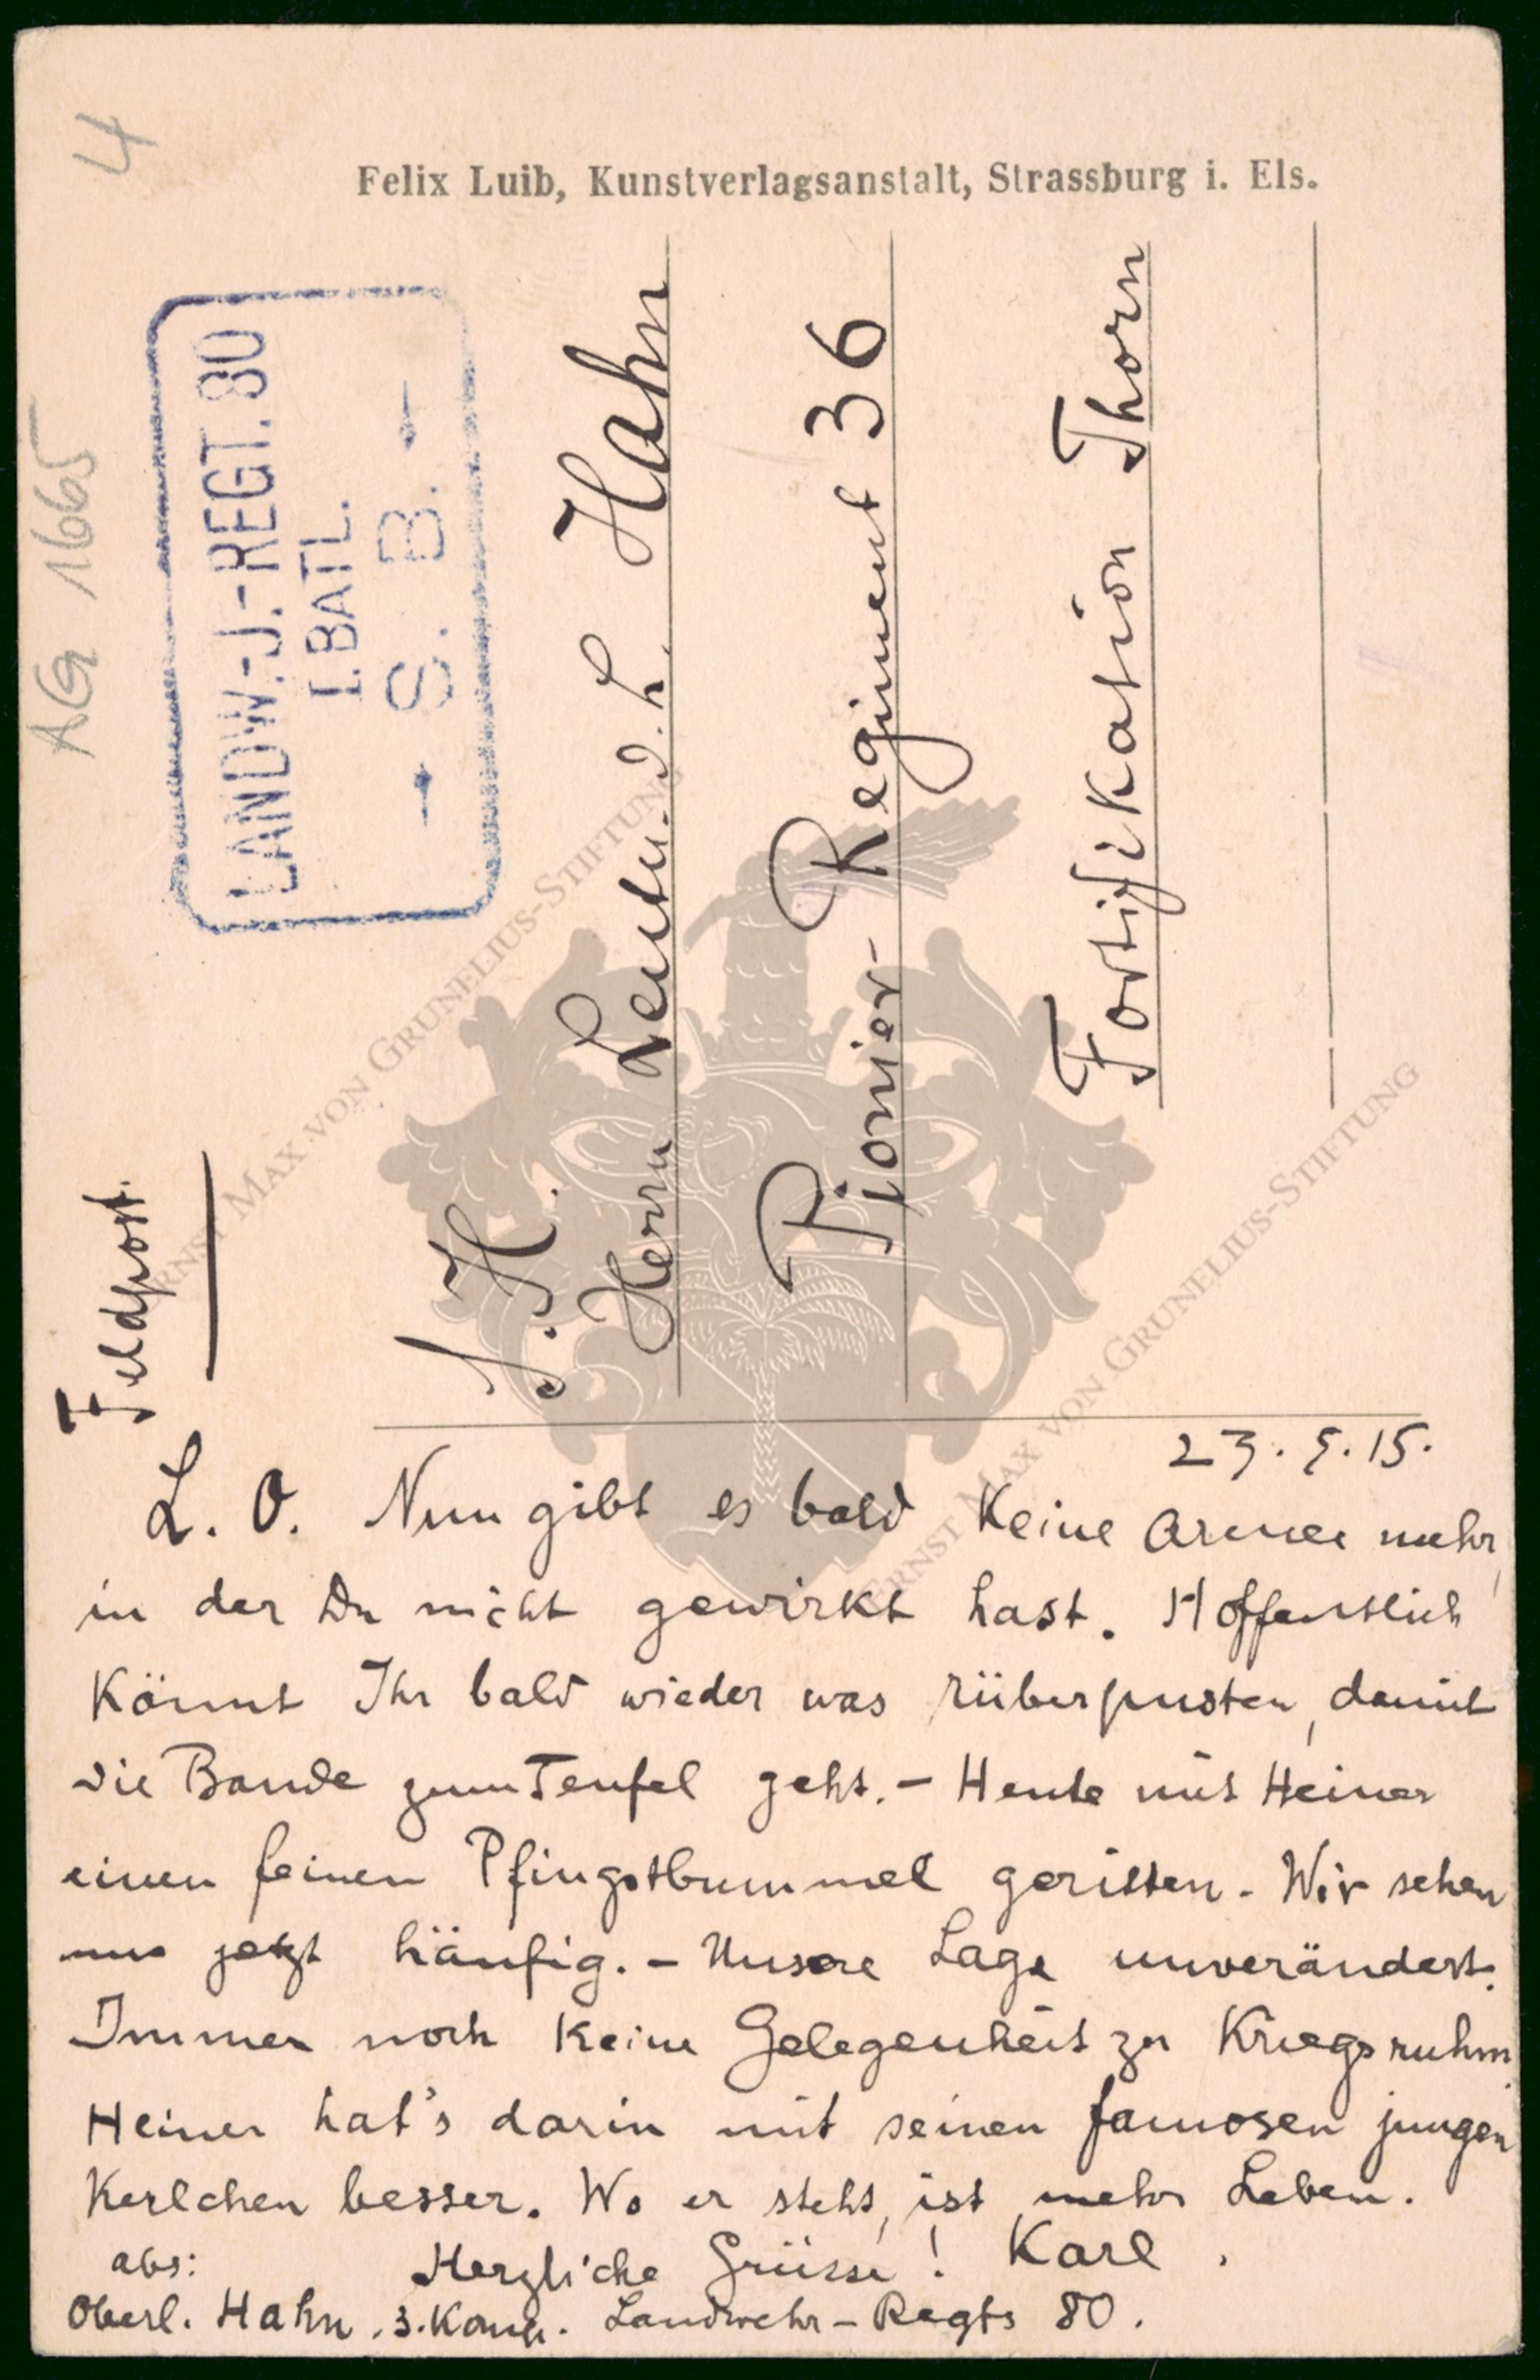 4
AG 1665
Felix Luib, Kunstverlagsanstalt, Strassburg i. Els.
LANDW.-J.-REGT. 80
I. BATL.
S. B.
Feldpost.
S. H.
Herrn Leutn. d. L. Hahn
Pionier-Regiment 36
Fortifikation Thorn
ERNST MAX VON GRUNELIUS-STIFTUNG
ERNST MAX VON GRUNELIUS-STIFTUNG
23. 5. 15.
L. O. Nun gibt es bald keine Armee mehr,
in der Du nicht gewirkt hast. Hoffentlich
könnt Ihr bald wieder was rüberpusten, damit
die Bande zum Teufel geht. – Heute mit Heiner
einen feinen Pfingstbummel geritten. Wir sehen
uns jetzt häufig. – Unsere Lage unverändert.
Immer noch keine Gelegenheit zu Kriegsruhm.
Heiner hat's darin mit seinen famosen jungen
Kerlchen besser. Wo er steht, ist mehr Leben.
Herzliche Grüsse! Karl.
abs:
Oberl. Hahn. 3. Komp. Landwehr-Regts 80.